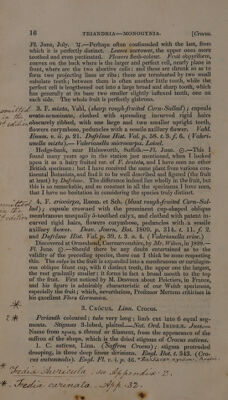 16 TRIANDRIA—MONOGYNIA. [Crocus.
Fl. June, July. ♃.—Perhaps often confounded with the last, from
which it is perfectly distinct. Leaves narrower, the upper ones more
toothed and even pectinated. Flowers flesh-colour. Fruit elliptical,
convex on the back where is the larger and perfect cell, nearly plane in
front, where are the two abortive cells; and these are shrunk so as to
form two projecting lines or ribs; these are terminated by two small
subulate teeth; between them is often another little tooth, while the
perfect cell is lengthened out into a large broad and sharp tooth, which
has generally at its base two smaller slightly reflexed teeth, one on
each side. The whole fruit is perfectly glabrous.
3. F. mixta, Vahl, (sharp rough-fruited Corn-Salad); capsule
ovato-acuminate, clothed with spreading incurved rigid hairs
obscurely ribbed, with one large and two smaller upright teeth,
flowers corymbose, peduncles with a sessile axillary flower. Vahl,
Enum. v. ii. p. 21. Dufresne Hist. Val. p. 58. t. 3. f. 6. (Valeri-
anella mixta).— Valerianella mixta, Loisel.
Hedge-bank, near Halesworth, Suffolk.—Fl. June. ☉.—This I
found many years ago in the station just mentioned, when I looked
upon it as a hairy fruited var. of F. dentata, and I have seen no other
British specimen; but I have received the same plant from many con-
tinental Botanists, and find it to be well described and figured (the fruit
at least) by Dufresne. The difference indeed lies wholly in the fruit, but
this is so remarkable, and so constant in all the specimens I have seen,
that I have no hesitation in considering the species truly distinct.
4. F. eriocarpa, Roem. et Sch. (Most rough-fruited Corn-Sal-
lad); capsule crowned with the prominent cup-shaped oblique
membranous unequally 6-toothed calyx, and clothed with patent in-
curved rigid hairs, flowers corymbose, peduncles with a sessile
axillary flower. Desv. Journ. Bot. 1809. p. 314. t. 11. f. 2.
Dufresne Hist. Val. p. 59. t. 3. n. 4. (Valerianella erioc.)
Discovered at Ormesherd, Caernarvonshire, by Mr. Wilson, in 1828.—
Fl. June. ☉.—Should there be any doubt entertained as to the
validity of the preceding species, there can I think be none respecting
this. The calyx in the fruit is expanded into a membranous or cartilagin-
ous oblique blunt cup, with 6 distinct teeth, the upper one the largest,
the rest gradually smaller: it forms in fact a broad mouth to the top
of the fruit. First noticed by M. Desvaux about Poictiers, in France,
and his figure is admirably characteristic of our Welsh specimens,
especially the fruit; which, nevertheless, Professor Mertens criticises in
his excellent Flora Germanica.
3. CROCUS, Linn. Crocus.
Perianth coloured; tube very long; limb cut into 6 equal seg-
ments. Stigmas 3-lobed, plaited.—Nat. Ord. IRIDEÆ, Juss.—
Name from κροκος, a thread or filament, from the appearance of the
saffron of the shops, which is the dried stigmas of Crocus sativus.
1. C. sativus, Linn. (Saffron Crocus); stigma protruded
drooping, in three deep linear divisions. Engl. Bot. t. 343. (Cro-
cus autumnalis). Engl. Fl. v. i. p. 46.
* Fedia Auricula. See Appendix 2.
*. Fedia carinata. App. 32.